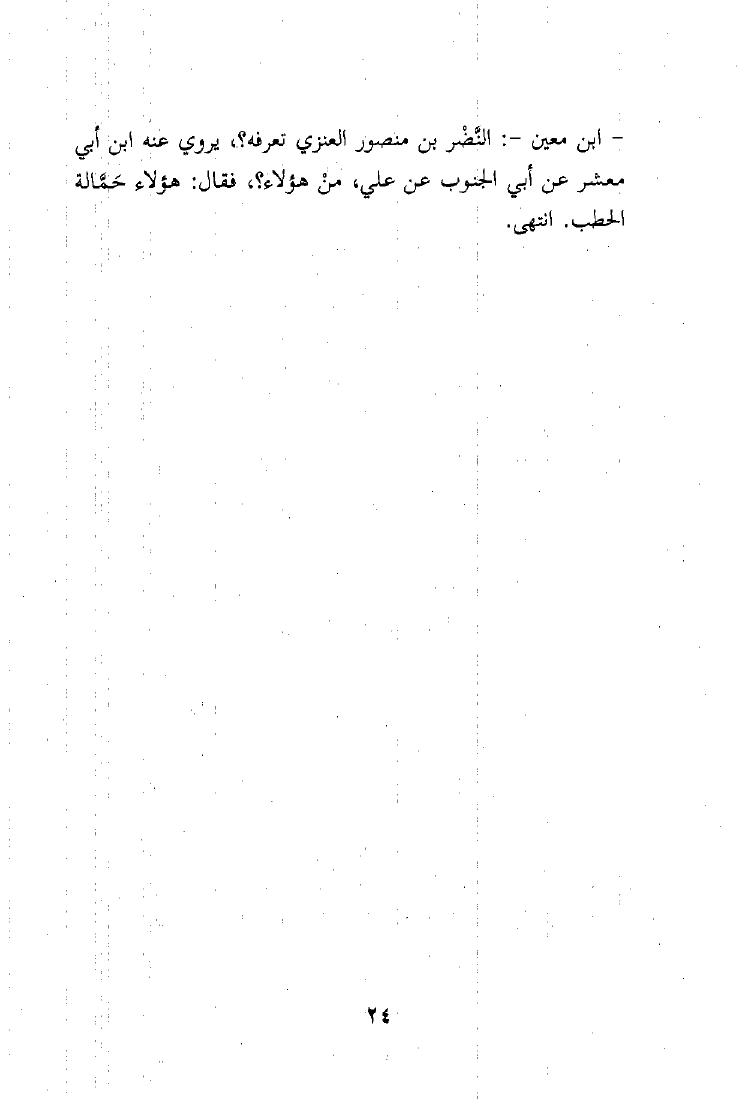 – ابن معين –: النَّضْر بن منصور العنزي تعرفه؟، يروي عنه ابن أبي
معشر عن أبي الجنوب عن علي، منْ هؤلاء؟، فقال: هؤلاء حَمَّالة
الحطب. انتهى.
٢٤